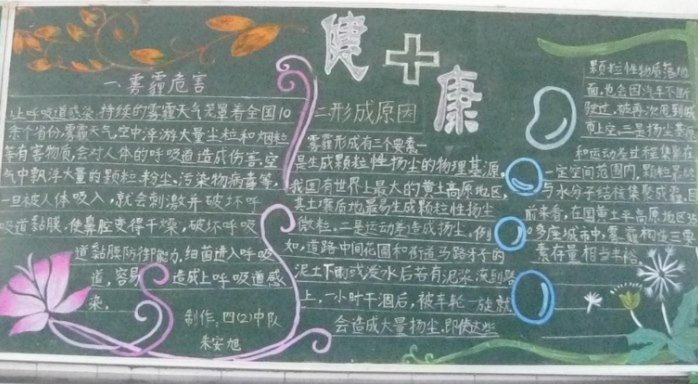 健康
一.雾霾危害
1.上呼吸道感染.持续的雾霾天气笼罩着全国10
余个省份,雾霾天气,空中浮游大量尘粒和烟粒
等有害物质,会对人体的呼吸道造成伤害,空
气中飘浮大量的颗粒,粉尘,污染物病毒等,
一旦被人体吸入,就会刺激并破坏呼
吸道黏膜,使鼻腔变得干燥,破坏呼吸
道黏膜防御能力,细菌进入呼吸
道,容易造成上呼吸道感
染,
制作:四(2)中队
朱安旭
二形成原因
雾霾形成有三个要素一
是生成颗粒性扬尘的物理基源,
我国有世界上最大的黄土高原地区,
其土壤质地最易生成颗粒性扬尘
微粒,二是运动差造成扬尘,例
如,道路中间花圃和街道马路牙子的
泥土下雨或泼水后若有泥浆流到路
上,一小时干涸后,被车轮一旋就
会造成大量扬尘,即使这些
颗粒性物质落地
面,也会因汽车不断
驶过,被再次甩到
市上空,三是扬尘基
和运动差过程集聚在
一定空间范围内,颗粒最终
与水分子结核集聚成霾,
前来看,在国黄土平高原地区
多座城市中,雾霾构造三要
素存量相当丰裕